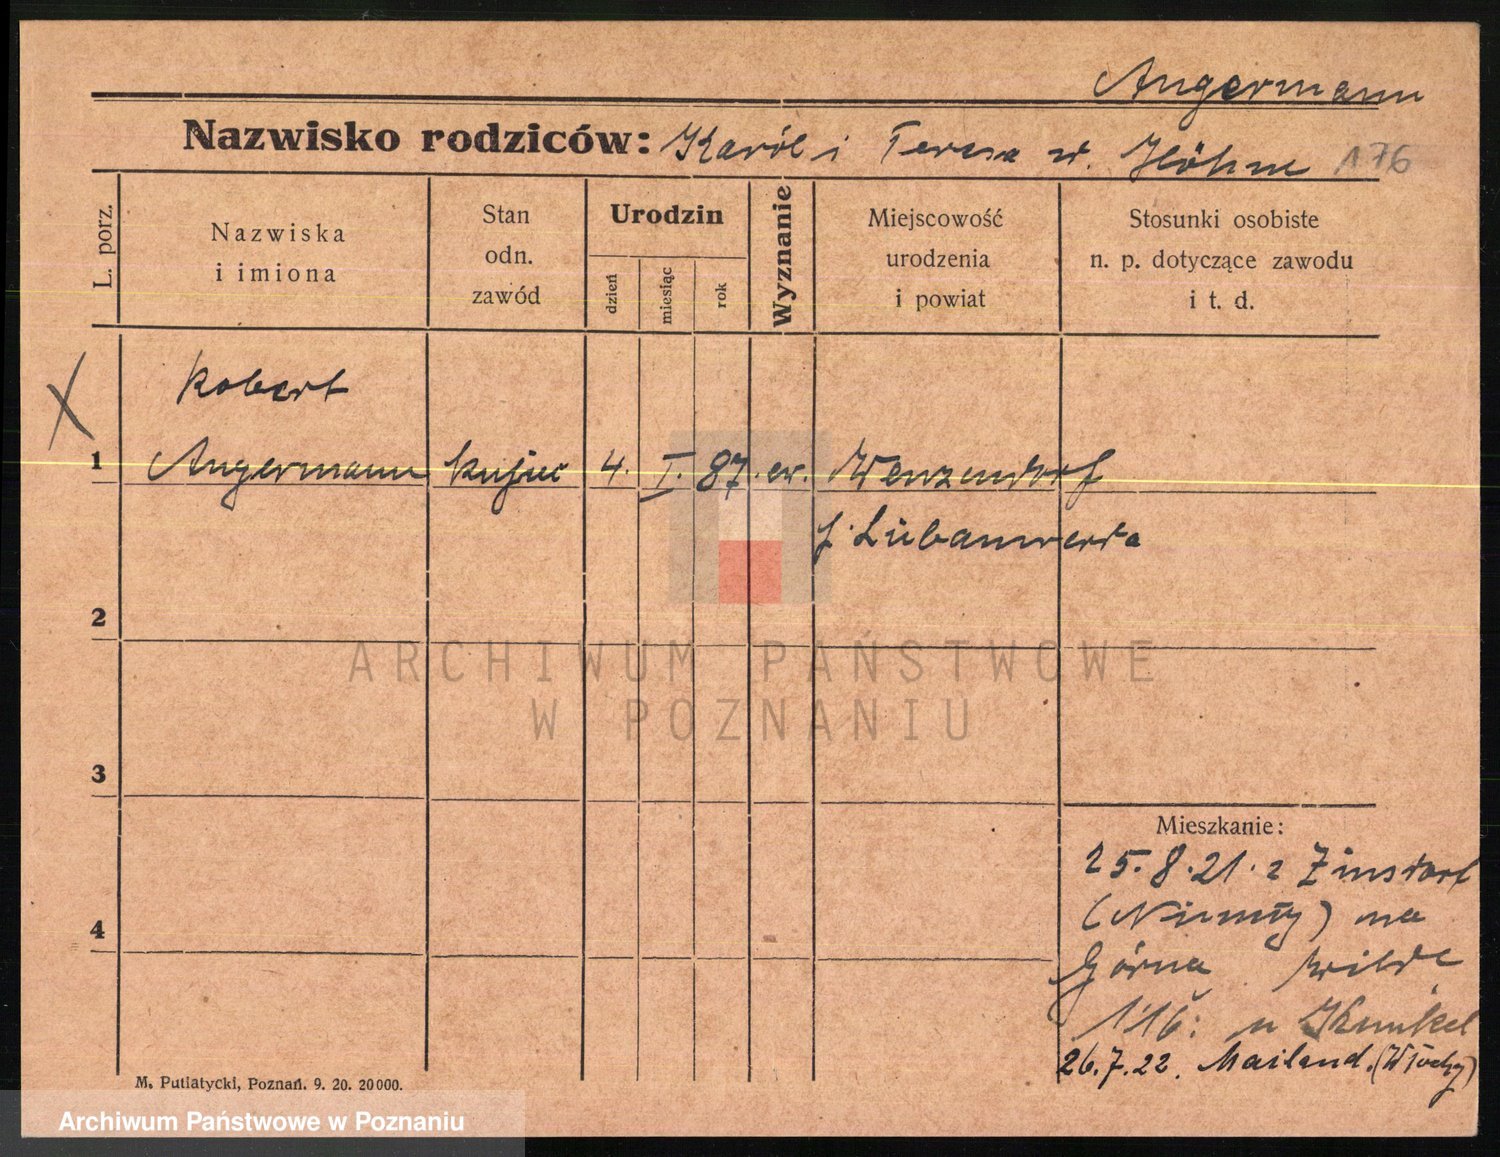 Angermann
Nazwisko rodziców: Karól i Teresa z d. Höhne 176
L. porz.
Nazwiska
i imiona
Stan
odn.
zawód
Urodzin
dzień
miesiąc
rok
Wyznanie
Miejscowość
urodzenia
i powiat
Stosunki osobiste
n. p. dotyczące zawodu
i t. d.
X
Robert
1 Angermann kupiec 4. I. 87. ew. Wenzendorf
Liebanwerda
2
3
4
Mieszkanie:
25.8.21. z Zinsdorf
(Niemcy) na
Górna Wilde
116. u Kunkel
26.7.22. Mailand. (Włochy)
M. Putiatycki, Poznań. 9. 20. 20 000.
ARCHIWUM PAŃSTWOWE
W POZNANIU
Archiwum Państwowe w Poznaniu